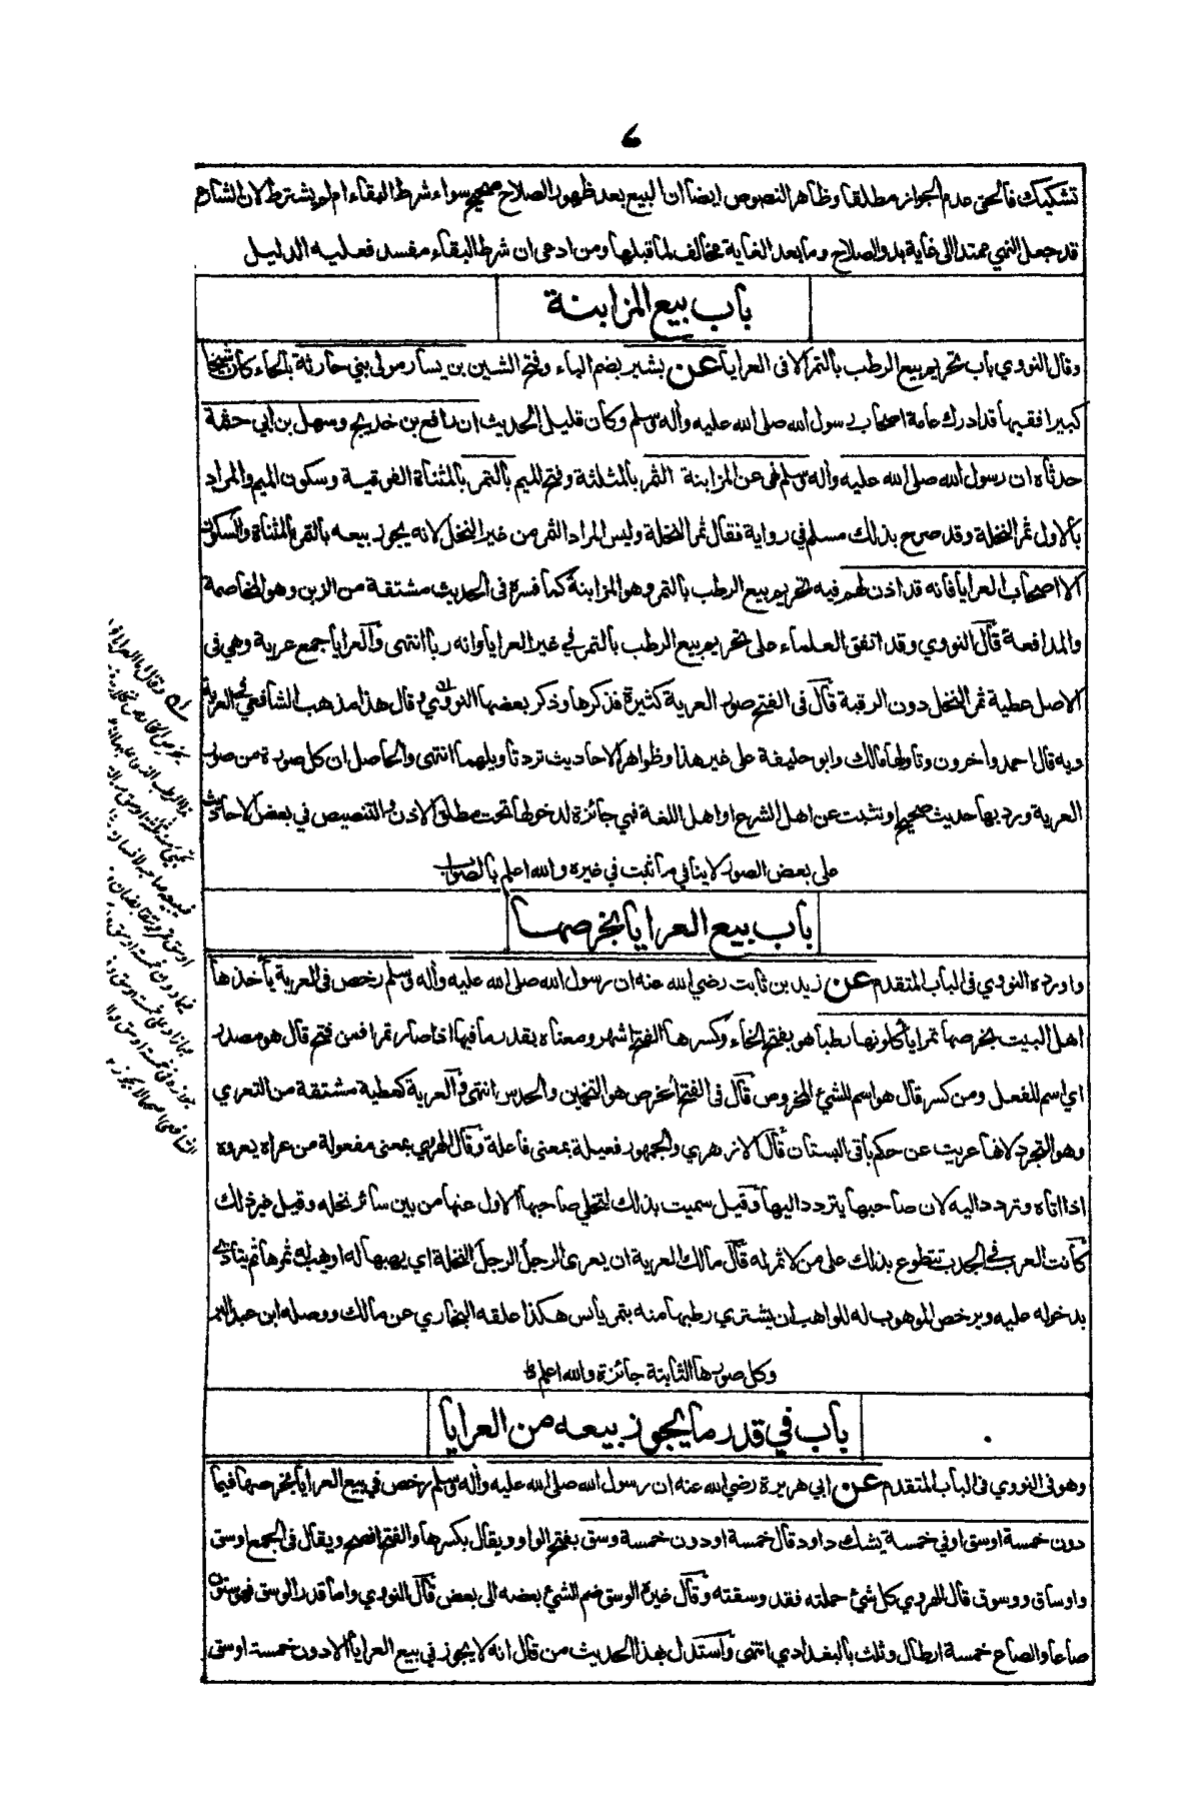 ٦
تشكيك فالحق عدم الجواز مطلقا وظاهر النصوص ايضا ان البيع بعد ظهور الصلاح صحيح سواء شرط البقاء ام لم يشترط لان الشارع
قد جعل النهي ممتدا الى غاية بدو الصلاح وما بعد الغاية مخالف لما قبلها ومن ادعى ان شرط البقاء مفسد فعليه الدليل
باب بيع المزابنة
وقال النووي باب تحريم بيع الرطب بالتمر الا في العرايا عن بشير بضم الباء وفتح الشين بن يسار مولى بني حارثة بالحاء كان شيخا
كبيرا فقيها قد ادرك عامة اصحاب رسول الله صلى الله عليه وأله وسلم وكان قليل الحديث ان رافع بن خديج وسهل بن ابي حثمة
حدثاه ان رسول الله صلى الله عليه وأله وسلم نهى عن المزابنة الثمر بالمثلثة وفتح الميم بالتمر بالمثناة الفوقية وسكون الميم والمراد
بالاول ثمر النخلة وقد صرح بذلك مسلم في رواية فقال ثمر النخلة وليس المراد الثمر من غير النخل لانه يجوز بيعه بالتمر بالمثناة والسكون
الا اصحاب العرايا فانه قد اذن لهم فيه تحريم بيع الرطب بالتمر وهو المزابنة كما فسره في الحديث مشتقة من الزبن وهو المخاصمة
والمدافعة قال النووي وقد اتفق العلماء على تحريم بيع الرطب بالتمر في غير العرايا وانه ربا انتهى والعرايا جمع عرية وهي في
الاصل عطية ثمر النخل دون الرقبة قال في الفتح صور العرية كثيرة فذكرها وذكر بعضها النووي وقال هذا مذهب الشافعي في العرية
وبه قال احمد وأخرون وتاولها مالك وابو حنيفة على غير هذا وظواهر الاحاديث ترد تاويلهما انتهى والحاصل ان كل صورة من صور
العرية ورد بها حديث صحيح او ثبتت عن اهل الشرع او اهل اللغة فهي جائزة لدخولها تحت مطلق الاذن والتنصيص في بعض الاحاديث
على بعض الصور لا ينافي ما ثبت في غيره والله اعلم بالصواب
باب بيع العرايا بخرصها
واورده النووي في الباب المتقدم عن زيد بن ثابت رضي الله عنه ان رسول الله صلى الله عليه وأله وسلم رخص في العرية يأخذها
اهل البيت بخرصها تمرا يأكلونها رطبا هو بفتح الخاء وكسرها الفتح اشهر ومعناه بقدر ما فيها اذا صار تمرا فمن فتح قال هو مصدر
اي اسم للفعل ومن كسر قال هو اسم للشئ المخروص قال في الفتح الخرص هو التخمين والحدس انتهى والعرية كعطية مشتقة من التعري
وهو التجرد لانها عريت عن حكم باقي البستان قال الازهري والجمهور فعيلة بمعنى فاعلة وقال الهروي بمعنى مفعولة من عراه يعروه
اذا اتاه وتردد اليه لان صاحبها يتردد اليها وقيل سميت بذلك لتخلي صاحبها الاول عنها من بين سائر نخله وقيل غير ذلك
كانت العرب في الجدب تتطوع بذلك على من لا ثمر له قال مالك العرية ان يعرى الرجل الرجل النخلة اي يهبها له او يهب له ثمرها ثم يتأذى
بدخوله عليه ويرخص الموهوب له للواهب ان يشتري رطبها منه بتمر يابس هكذا علقه البخاري عن مالك ووصله ابن عبد البر
وكل صورها الثابتة جائزة والله اعلم
باب في قدر ما يجوز بيعه من العرايا
وهو في النووي في الباب المتقدم عن ابي هريرة رضي الله عنه ان رسول الله صلى الله عليه وأله وسلم رخص في بيع العرايا بخرصها فيما
دون خمسة اوسق او في خمسة يشك داود قال خمسة او دون خمسة وسق بفتح الواو ويقال بكسرها والفتح افصح ويقال في الجمع اوسق
واوساق ووسوق قال الهروي كل شئ حملته فقد وسقته وقال غيره الوسق ضم الشئ بعضه الى بعض قال النووي واما قدر الوسق فهو ستون
صاعا والصاع خمسة ارطال وثلث بالبغدادي انتهى واستدل بهذا الحديث من قال انه لا يجوز في بيع العرايا الا دون خمسة اوسق